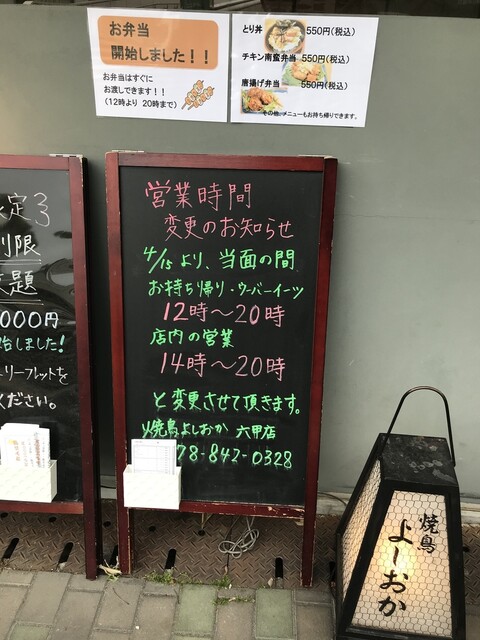 お弁当
開始しました！！
お弁当はすぐに
お渡しできます！！
(12時より 20時まで)
とり丼 550円(税込)
チキン南蛮弁当 550円(税込)
唐揚げ弁当 550円(税込)
その他、メニューもお持ち帰りできます。
定
限
題
000円
始しました!
リーフレットを
ください。
営業時間
変更のお知らせ
4/15より、当面の間
お持ち帰り・ウーバーイーツ
12時～20時
店内の営業
14時～20時
と変更させて頂きます。
焼鳥よしおか 六甲店
78-842-0328
焼鳥
よしおか